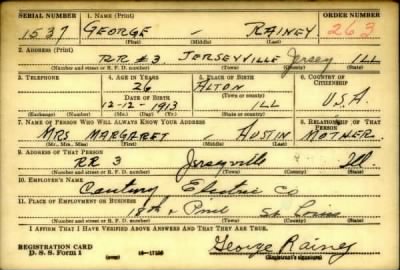 SERIAL NUMBER 1. NAME (Print) ORDER NUMBER
1537 GEORGE - RAINEY 263
(First) (Middle) (Last)
2. ADDRESS (Print)
RR #3 JERSEYVILLE Jersey ILL
(Number and street or R. F. D. number) (Town) (County) (State)
3. TELEPHONE 4. AGE IN YEARS 5. PLACE OF BIRTH 6. COUNTRY OF CITIZENSHIP
26 ALTON
(Town or county)
DATE OF BIRTH
12-12-1913 ILL U.S.A.
(Exchange) (Number) (Mo.) (Day) (Yr.) (State or country)
7. NAME OF PERSON WHO WILL ALWAYS KNOW YOUR ADDRESS 8. RELATIONSHIP OF THAT PERSON
MRS MARGARET - AUSTIN MOTHER
(Mr., Mrs., Miss) (First) (Middle) (Last)
9. ADDRESS OF THAT PERSON
RR 3 Jerseyville Ill
(Number and street or R. F. D. number) (Town) (County) (State)
10. EMPLOYER'S NAME
Century Electric Co
11. PLACE OF EMPLOYMENT OR BUSINESS
18th & Pine St Louis
(Number and street or R. F. D. number) (Town) (County) (State)
I AFFIRM THAT I HAVE VERIFIED ABOVE ANSWERS AND THAT THEY ARE TRUE.
REGISTRATION CARD
D. S. S. Form 1 (over) George Rainey
(Registrant's signature)